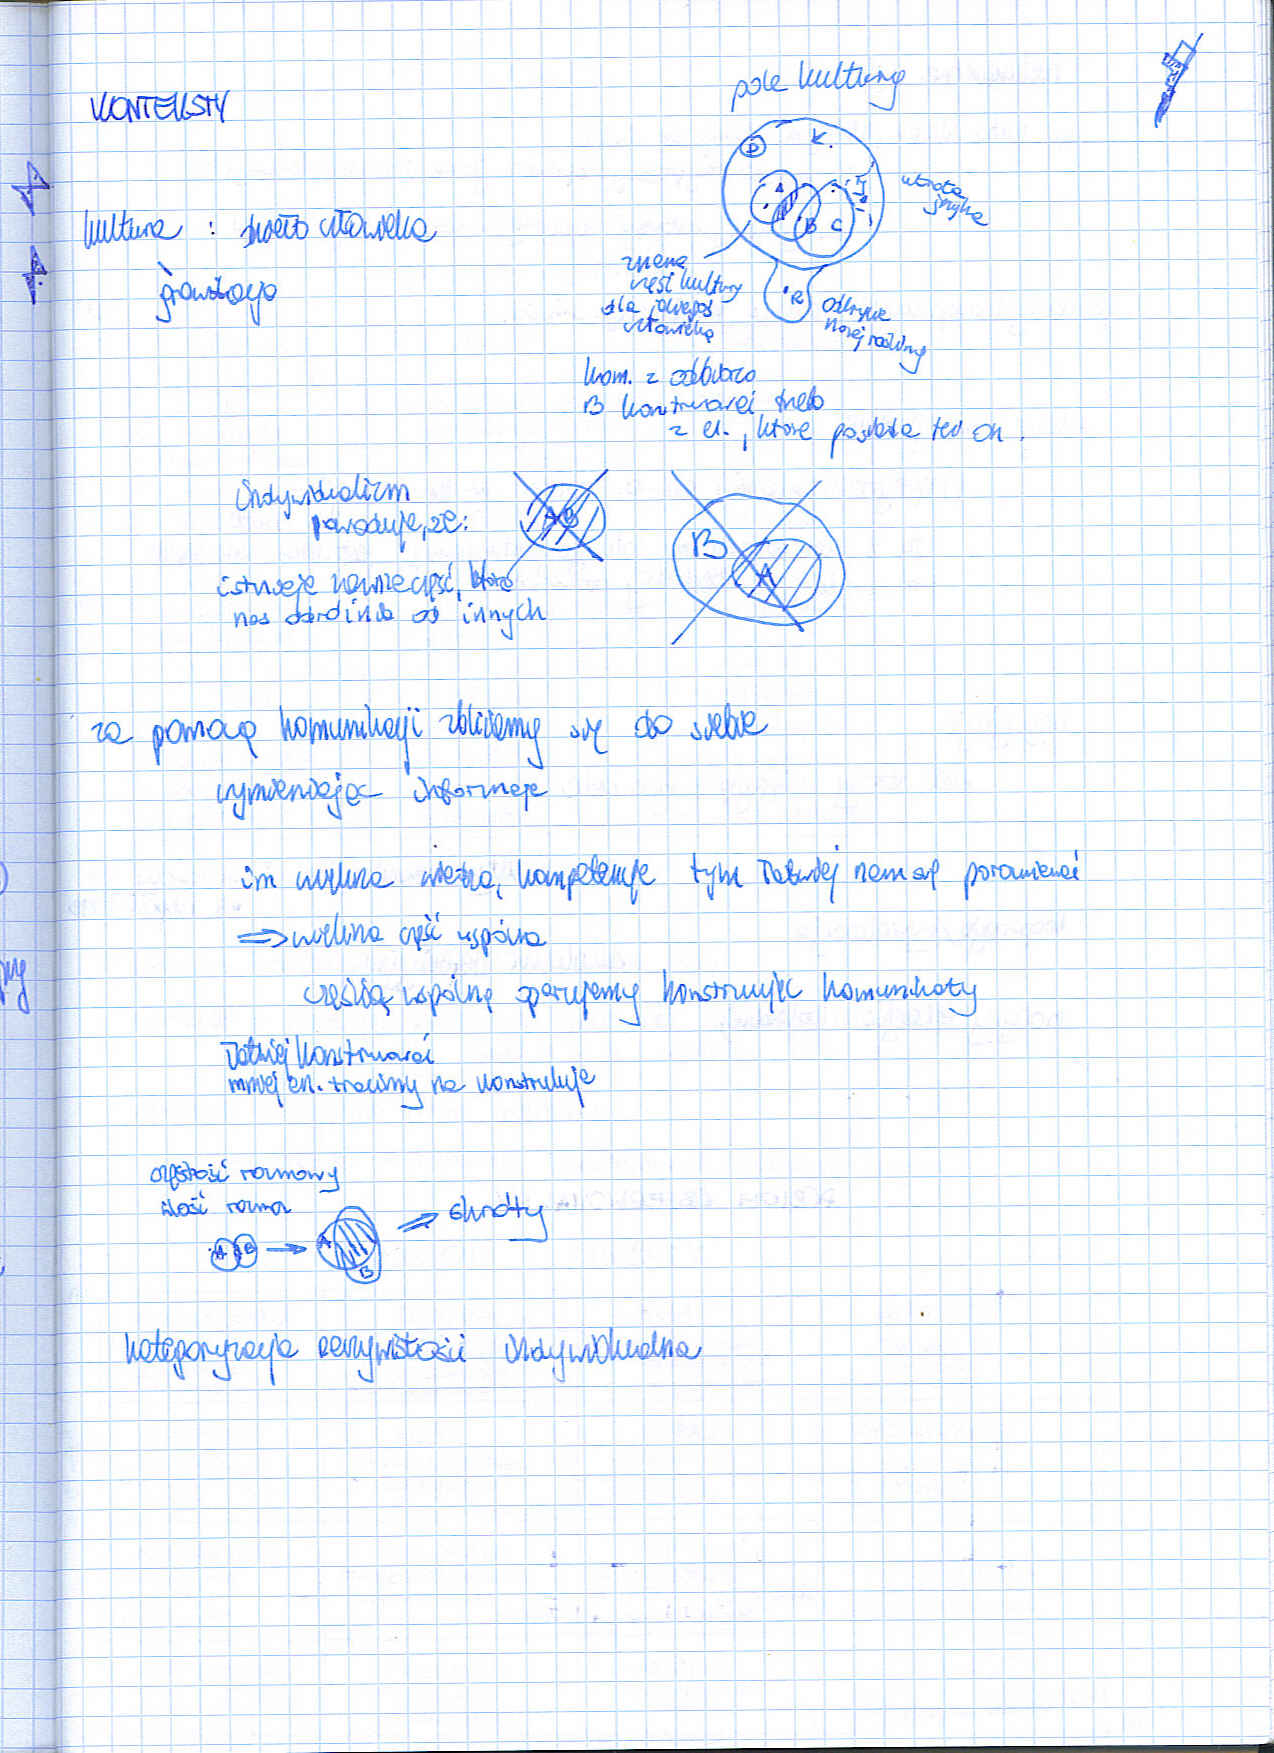 KONTEKSTY
pole kultury
D
K.
A
B
C
R
kultura : światło człowieka
utrata
języka
znana
część kultury
dla jakiegoś
człowieka
odkrycie
nowej rośliny
kom. z odbiorcą
B konstruować trzeba
z el., które posiada też on.
indywidualizm
powoduje, że:
A B
B
A
istnieje zawsze część, która
nas odróżnia od innych
za pomocą komunikacji zbliżamy się do siebie
wymieniając informacje
im większa wiedza, kompetencje tym łatwiej nam się porozumieć
⇒ większa część wspólna
częścią wspólną operujemy konstruując komunikaty
łatwiej konstruować
mniej en. tracimy na konstrukcje
częstość rozmowy
ilość rozmów
A B → A B ⇒ skróty
kategoryzacja rzeczywistości indywidualna